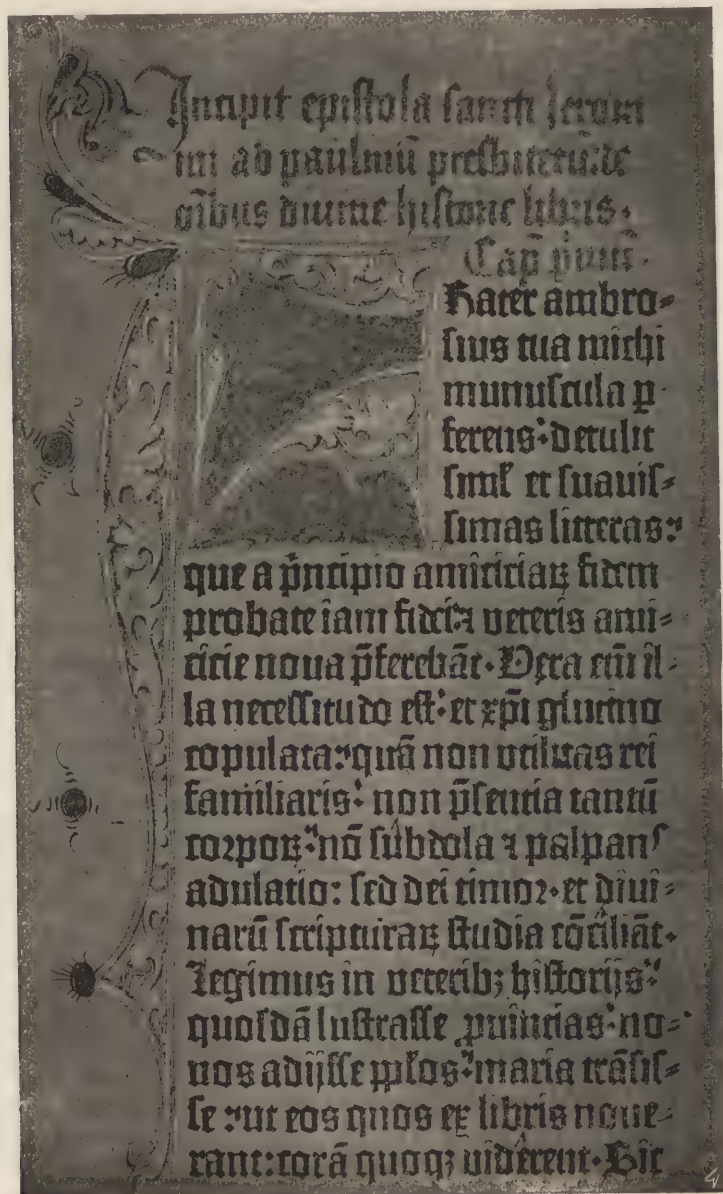 Incipit epistola sancti Ieroni
mi ad paulinū presbiterū: de
oībus diuine historie libris.
Cap̄ p̄mū.
Rater ambro⸗
sius tua michi
munuscula ꝑ
ferens: detulit
simꝉ et suauis⸗
simas litteras:
que a p̄ncipio amiciciaꝝ fidem
probate iam fidei ⁊ veteris ami⸗
cicie noua p̄ferebāt. Vera em̄ il⸗
la necessitudo est: et xp̄i glutino
copulata: quā non vtilitas rei
familiaris: non p̄sentia tantū
corpoꝝ: nō subdola ⁊ palpans
adulatio: sed dei timor. et diui⸗
narū scripturaꝝ studia cōciliāt.
Legimus in veteribꝫ historijs:
quosdā lustrasse ꝓuincias: no⸗
uos adijsse pp̄los: maria trāsis⸗
se: ut eos quos ex libris noue⸗
rant: corā quoqꝫ viderent. Sic